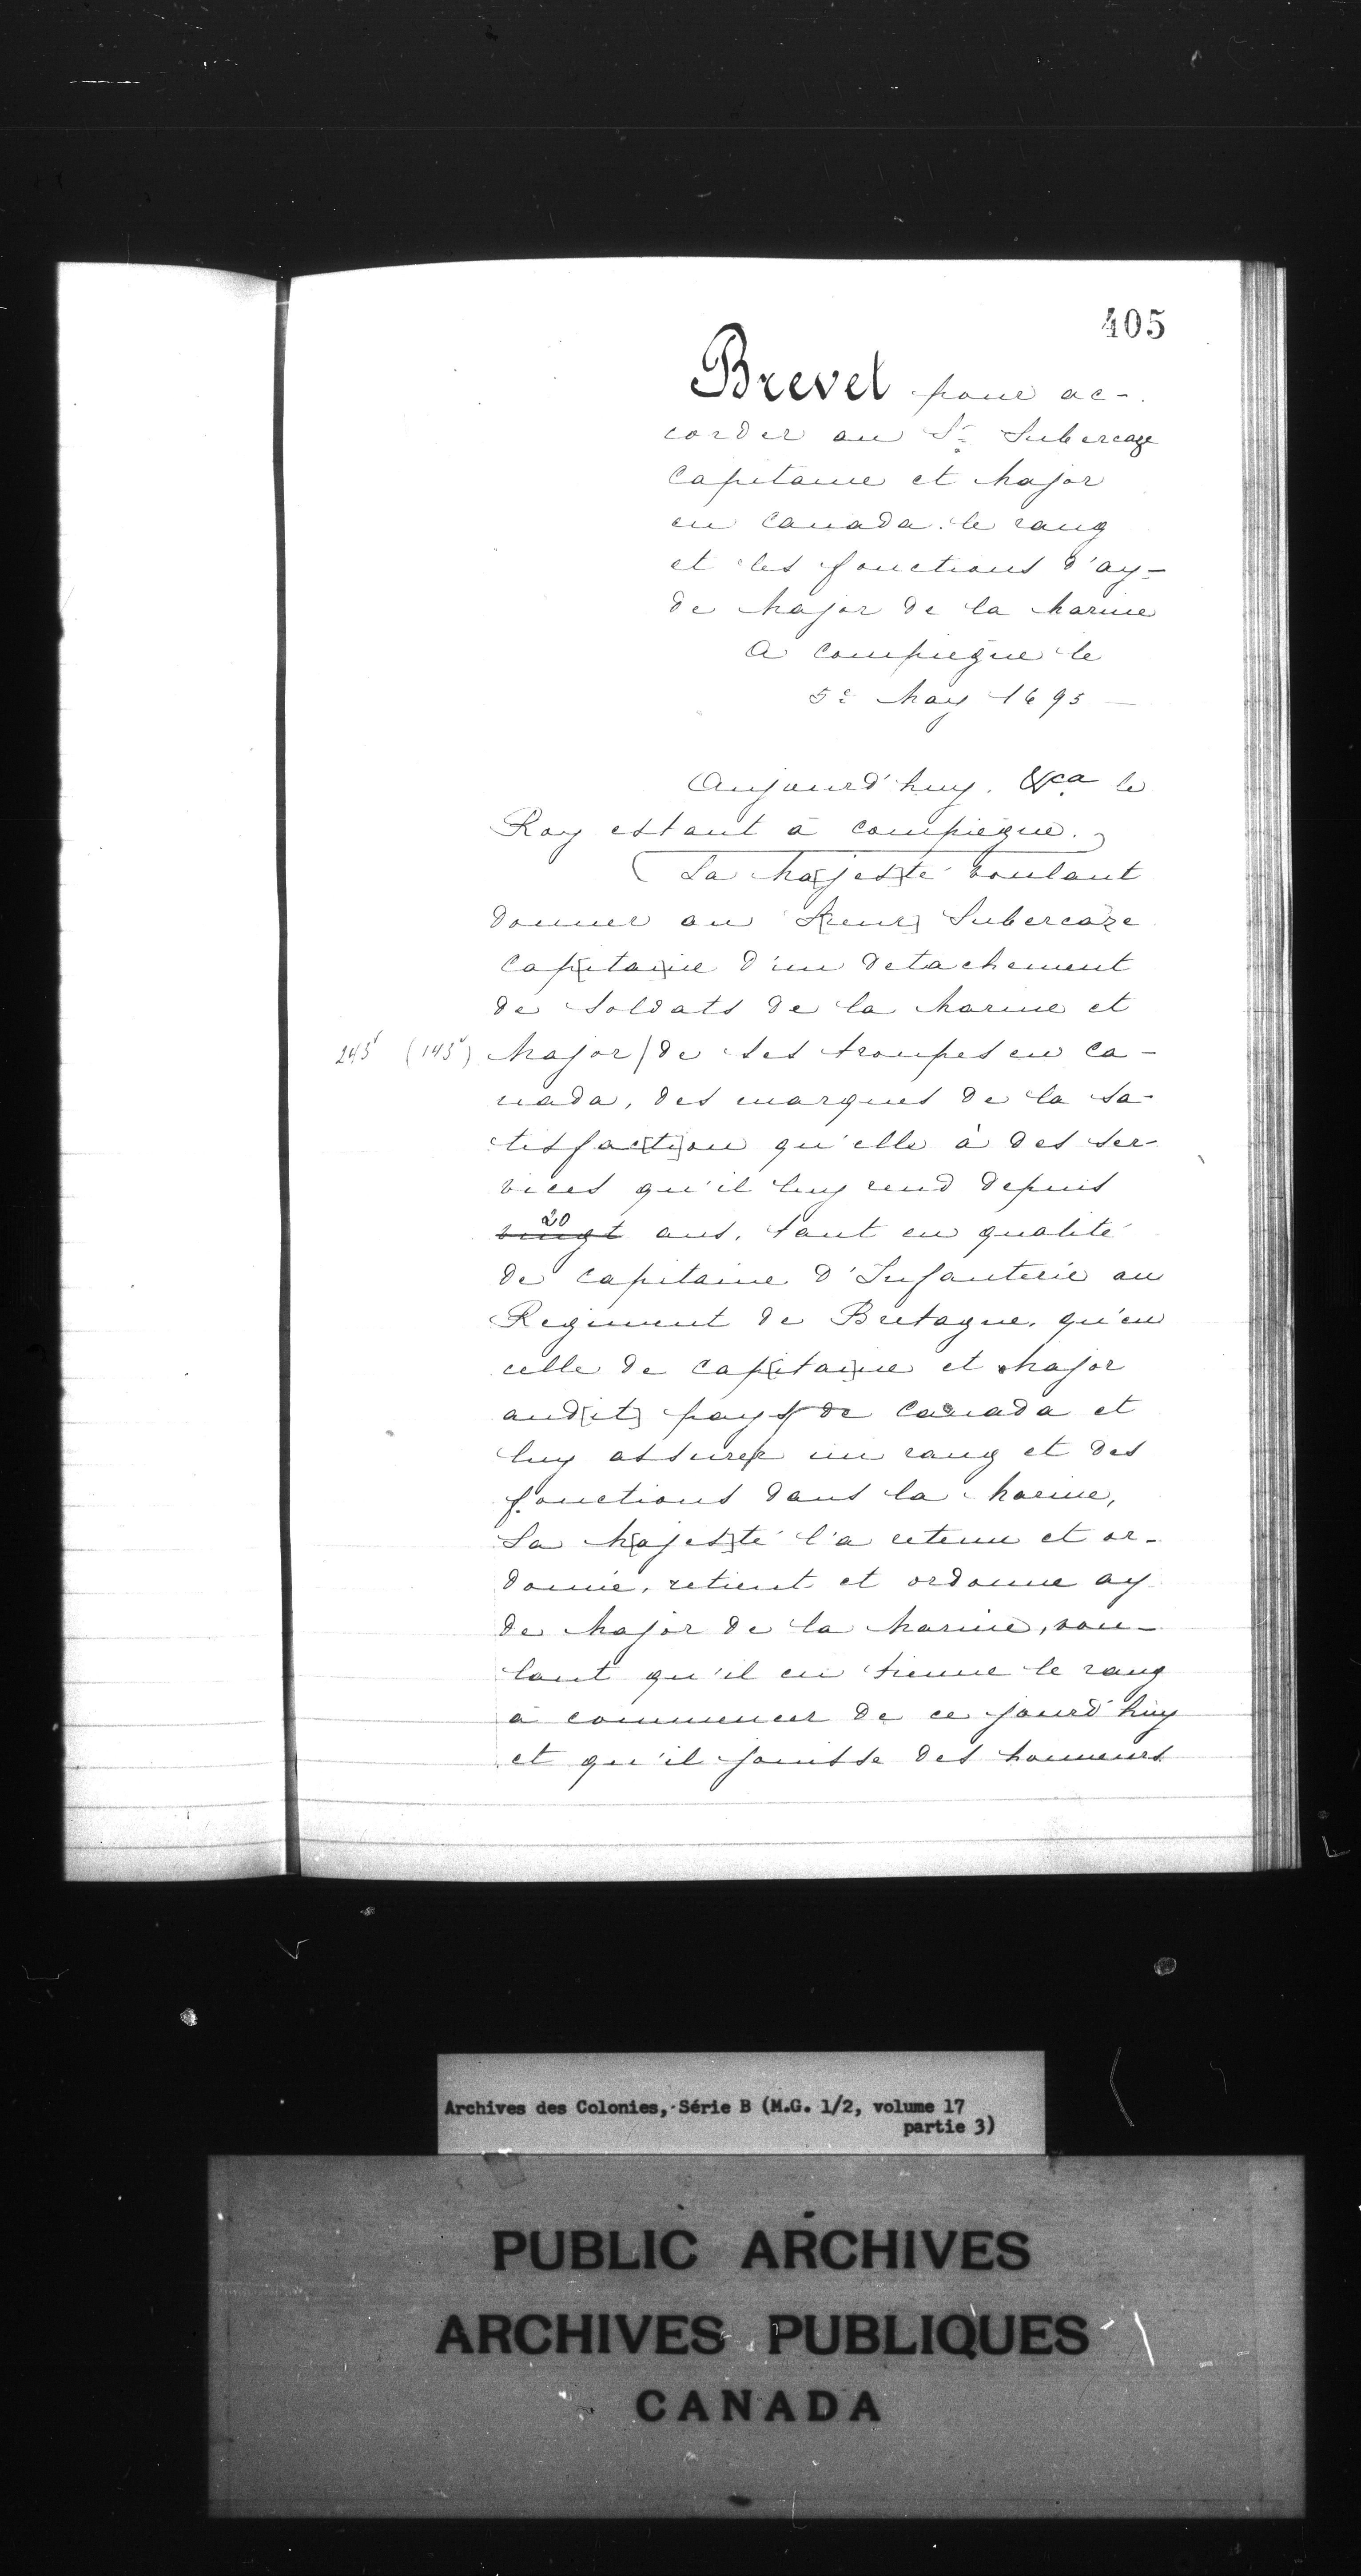 405
Brevet pour ac-
corder au Sr. Subercaze
Capitaine et Major
en Canada. le rang
et les fonctions d'ay-
de Major de la Marine
A Compiegne le
5e May 1695 —
Aujourd'huy. &ca le
Roy estant à Compiegne.
Sa Ma[jes]té voulant
donner au S[ieur] Subercaze
Cap[itai]ne d'un detachement
de soldats de la Marine et
245 (145) Major / de ses troupes en Ca-
nada, des marques de la sa-
tisfac[ti]on qu'elle à des ser-
vices qu'il luy rend depuis
20
vingt ans, tant en qualité
de Capitaine d'Infanterie au
Regiment de Bretagne, qu'en
celle de cap[itai]ne et Major
aud[it] pays de Canada et
luy assurer un rang et des
fonctions dans la Marine,
Sa M[ajes]té l'a retenu et or-
donné, retient et ordonne ay
de Major de la Marine, vou-
lant qu'il en tienne le rang
à commencer de ce jourd'huy
et qu'il jouisse des honneurs
Archives des Colonies, Série B (M.G. 1/2, volume 17
partie 3)
PUBLIC ARCHIVES
ARCHIVES PUBLIQUES
CANADA